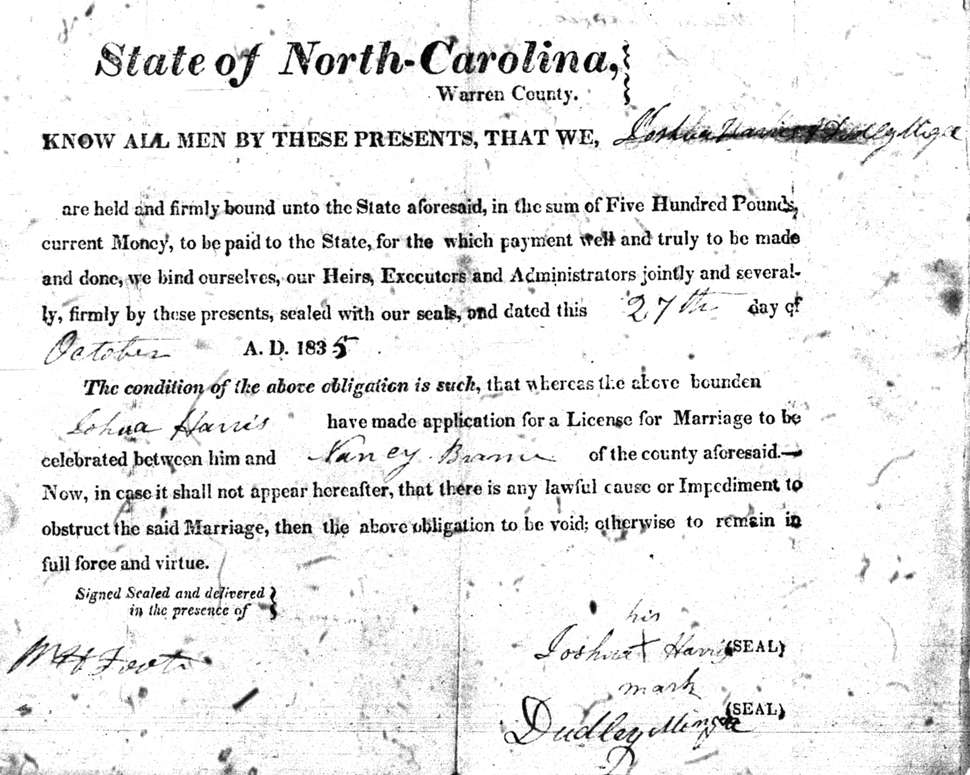 State of North-Carolina,
Warren County.
KNOW ALL MEN BY THESE PRESENTS, THAT WE, Joshua Harris & Dudley
are held and firmly bound unto the State aforesaid, in the sum of Five Hundred Pounds,
current Money, to be paid to the State, for the which payment well and truly to be made
and done, we bind ourselves, our Heirs, Executors and Administrators jointly and several-
ly, firmly by these presents, sealed with our seals, and dated this 27th day of
October A. D. 1835
The condition of the above obligation is such, that whereas the above bounden
Joshua Harris have made application for a License for Marriage to be
celebrated between him and Nancy of the county aforesaid.—
Now, in case it shall not appear hereafter, that there is any lawful cause or Impediment to
obstruct the said Marriage, then the above obligation to be void; otherwise to remain in
full force and virtue.
Signed Sealed and delivered
in the presence of
his
Joshua X Harris (SEAL)
mark
Dudley (SEAL)